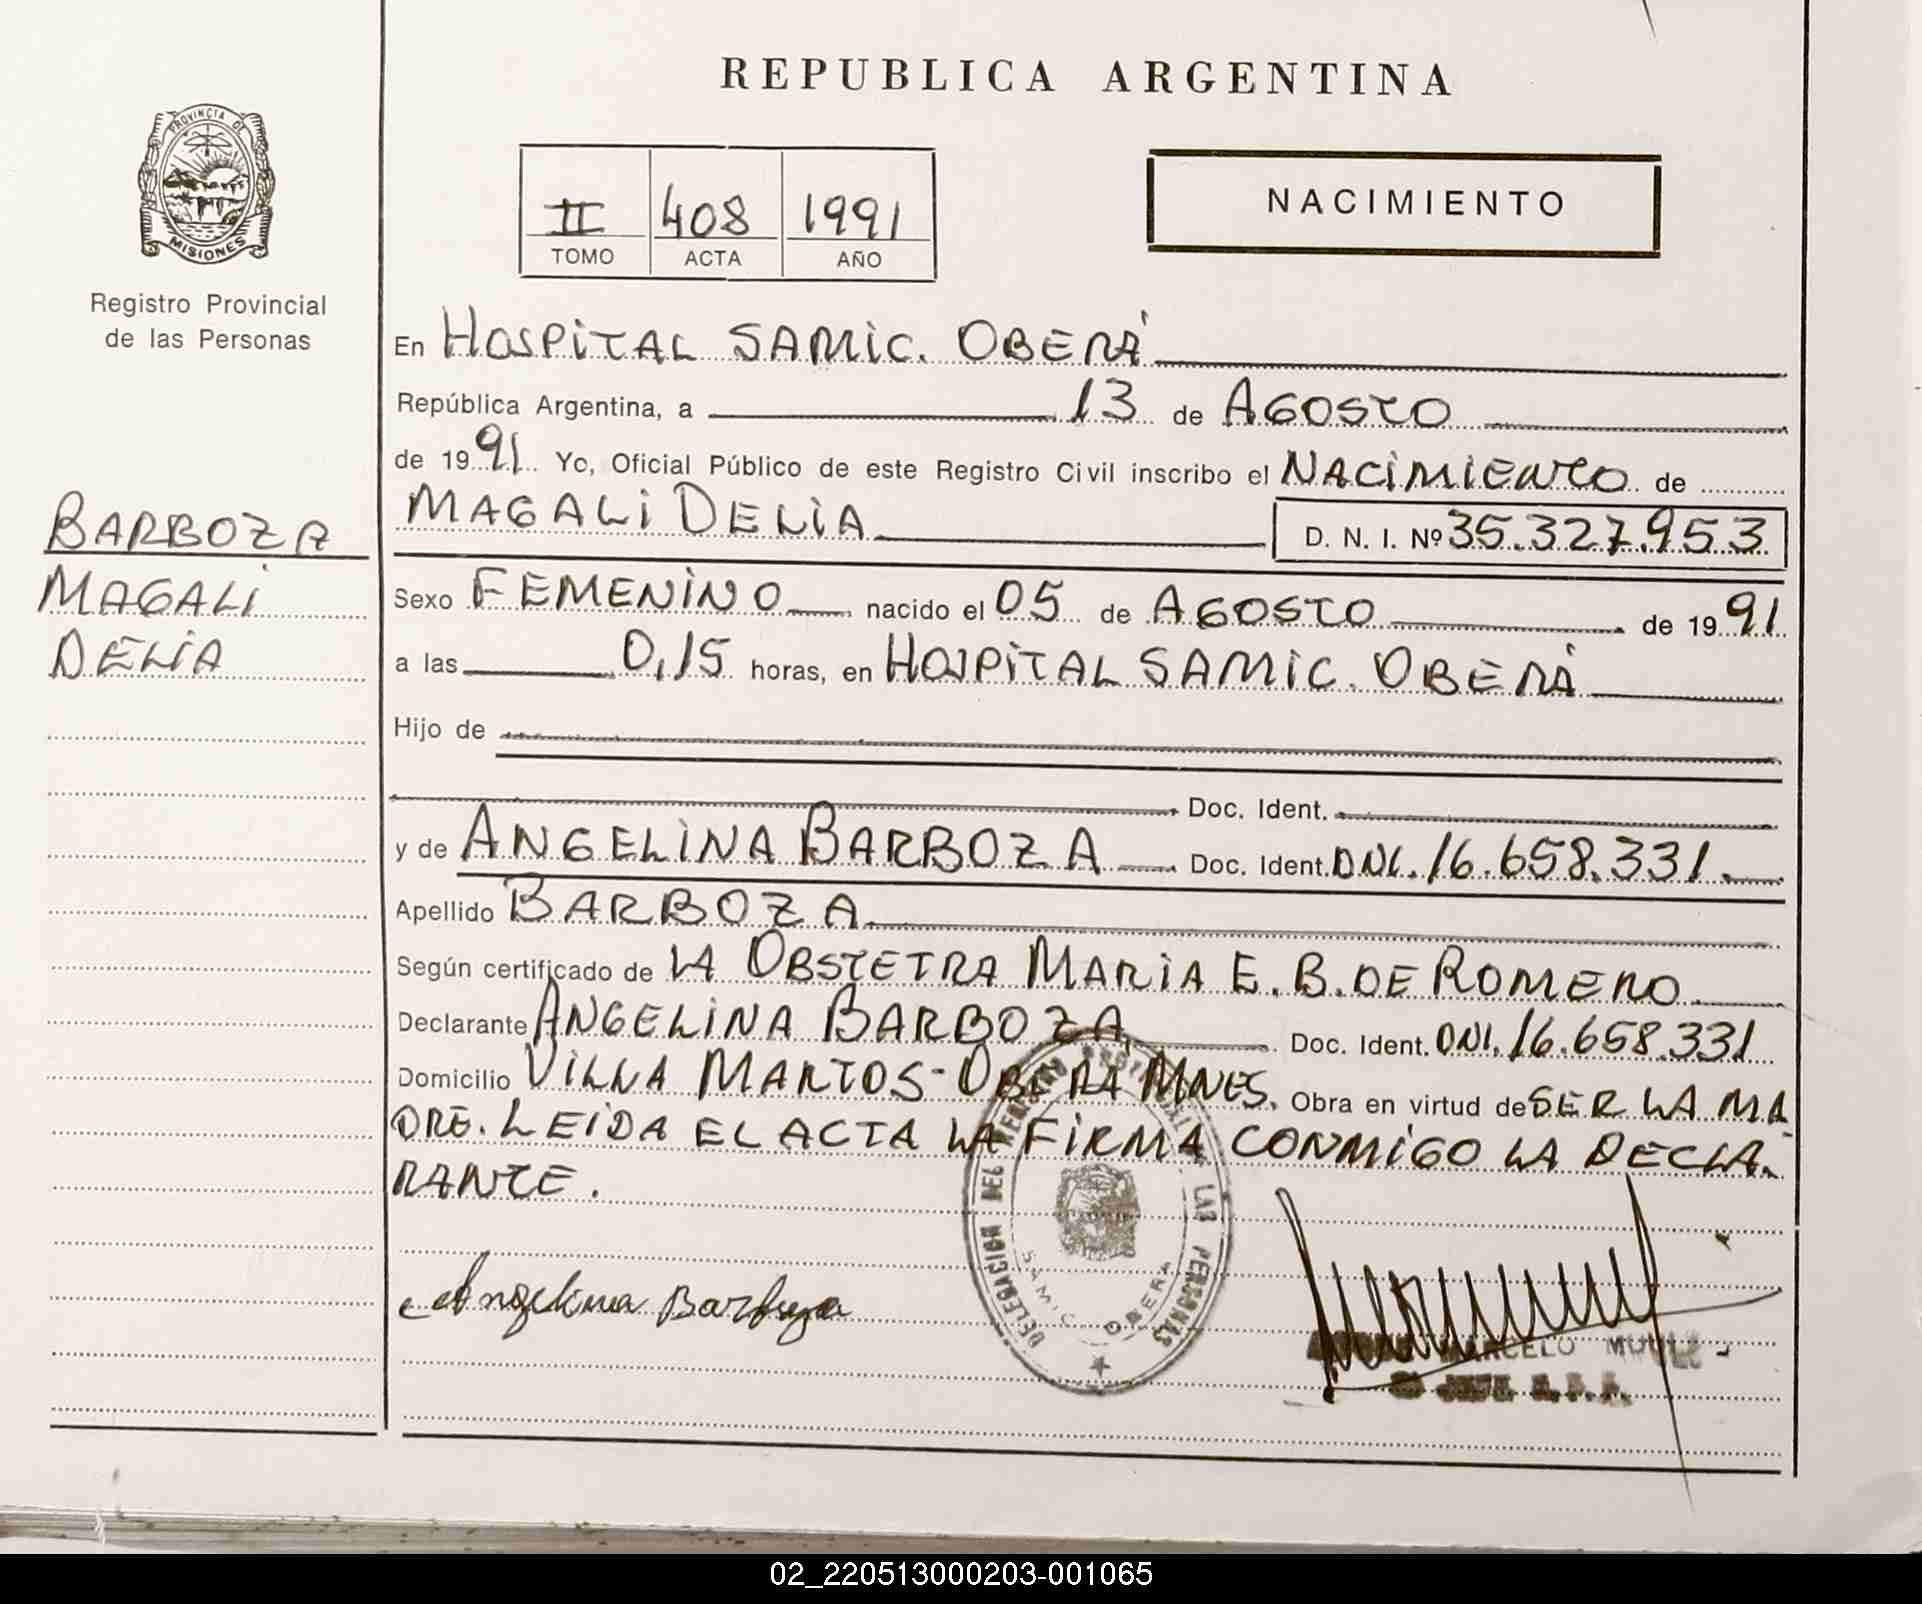 REPUBLICA ARGENTINA
PROVINCIA DE
MISIONES
II 408 1991
TOMO ACTA AÑO
NACIMIENTO
Registro Provincial
de las Personas
BARBOZA
MAGALI
DELIA
En HOSPITAL SAMIC. OBERÁ
República Argentina, a 13 de AGOSTO
de 1991 Yo, Oficial Público de este Registro Civil inscribo el NACIMIENTO de
MAGALI DELIA D. N. I. Nº 35.327.953
Sexo FEMENINO nacido el 05 de AGOSTO de 1991
a las 0,15 horas, en HOSPITAL SAMIC. OBERÁ
Hijo de
Doc. Ident.
y de ANGELINA BARBOZA Doc. Ident. DNI. 16.658.331.
Apellido BARBOZA
Según certificado de LA OBSTETRA MARIA E. B. DE ROMERO
Declarante ANGELINA BARBOZA Doc. Ident. DNI. 16.658.331
Domicilio VILLA MARTOS - OBERA MNES. Obra en virtud de SER LA MA
DRE. LEIDA EL ACTA LA FIRMA CONMIGO LA DECLA-
RANTE.
Angelina Barboza
DELEGACION DEL REGISTRO PROVINCIAL DE LAS PERSONAS
SAMIC OBERA
MARCELO
02_220513000203-001065